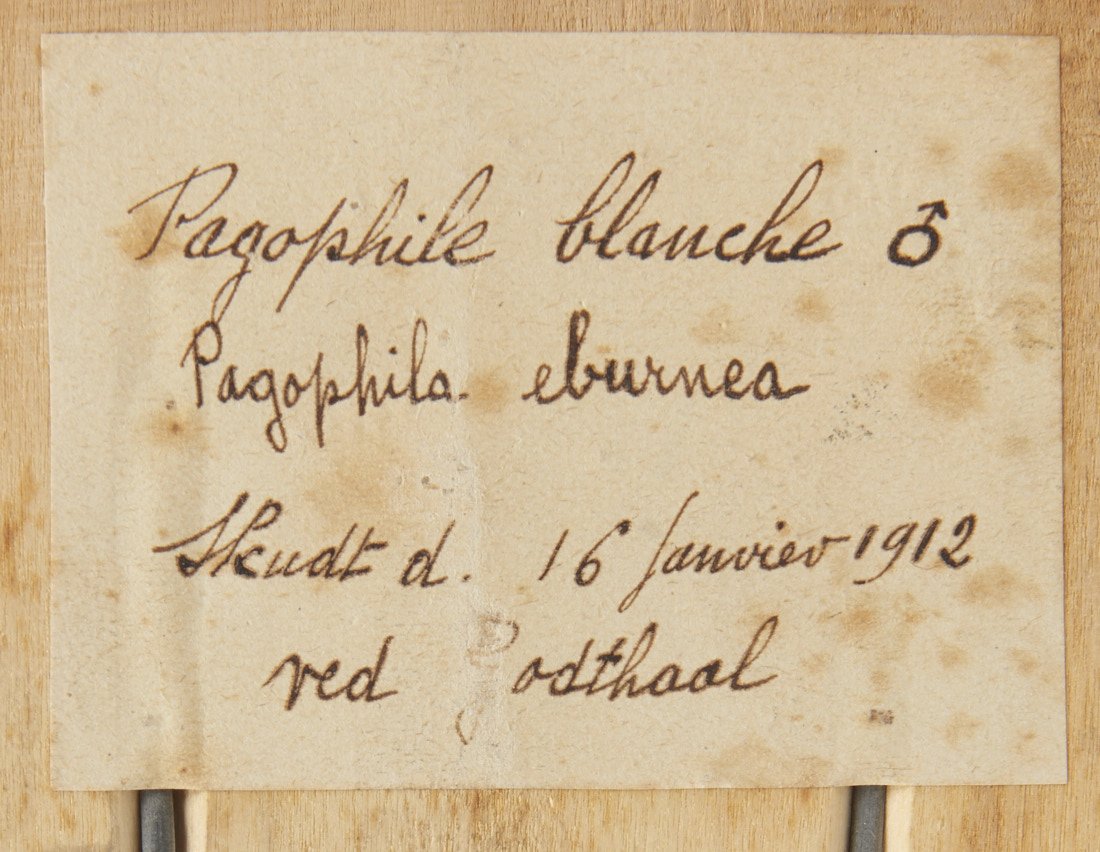 Pagophile blanche ♂
Pagophila eburnea
Skudt d. 16 Janvier 1912
ved odthaal